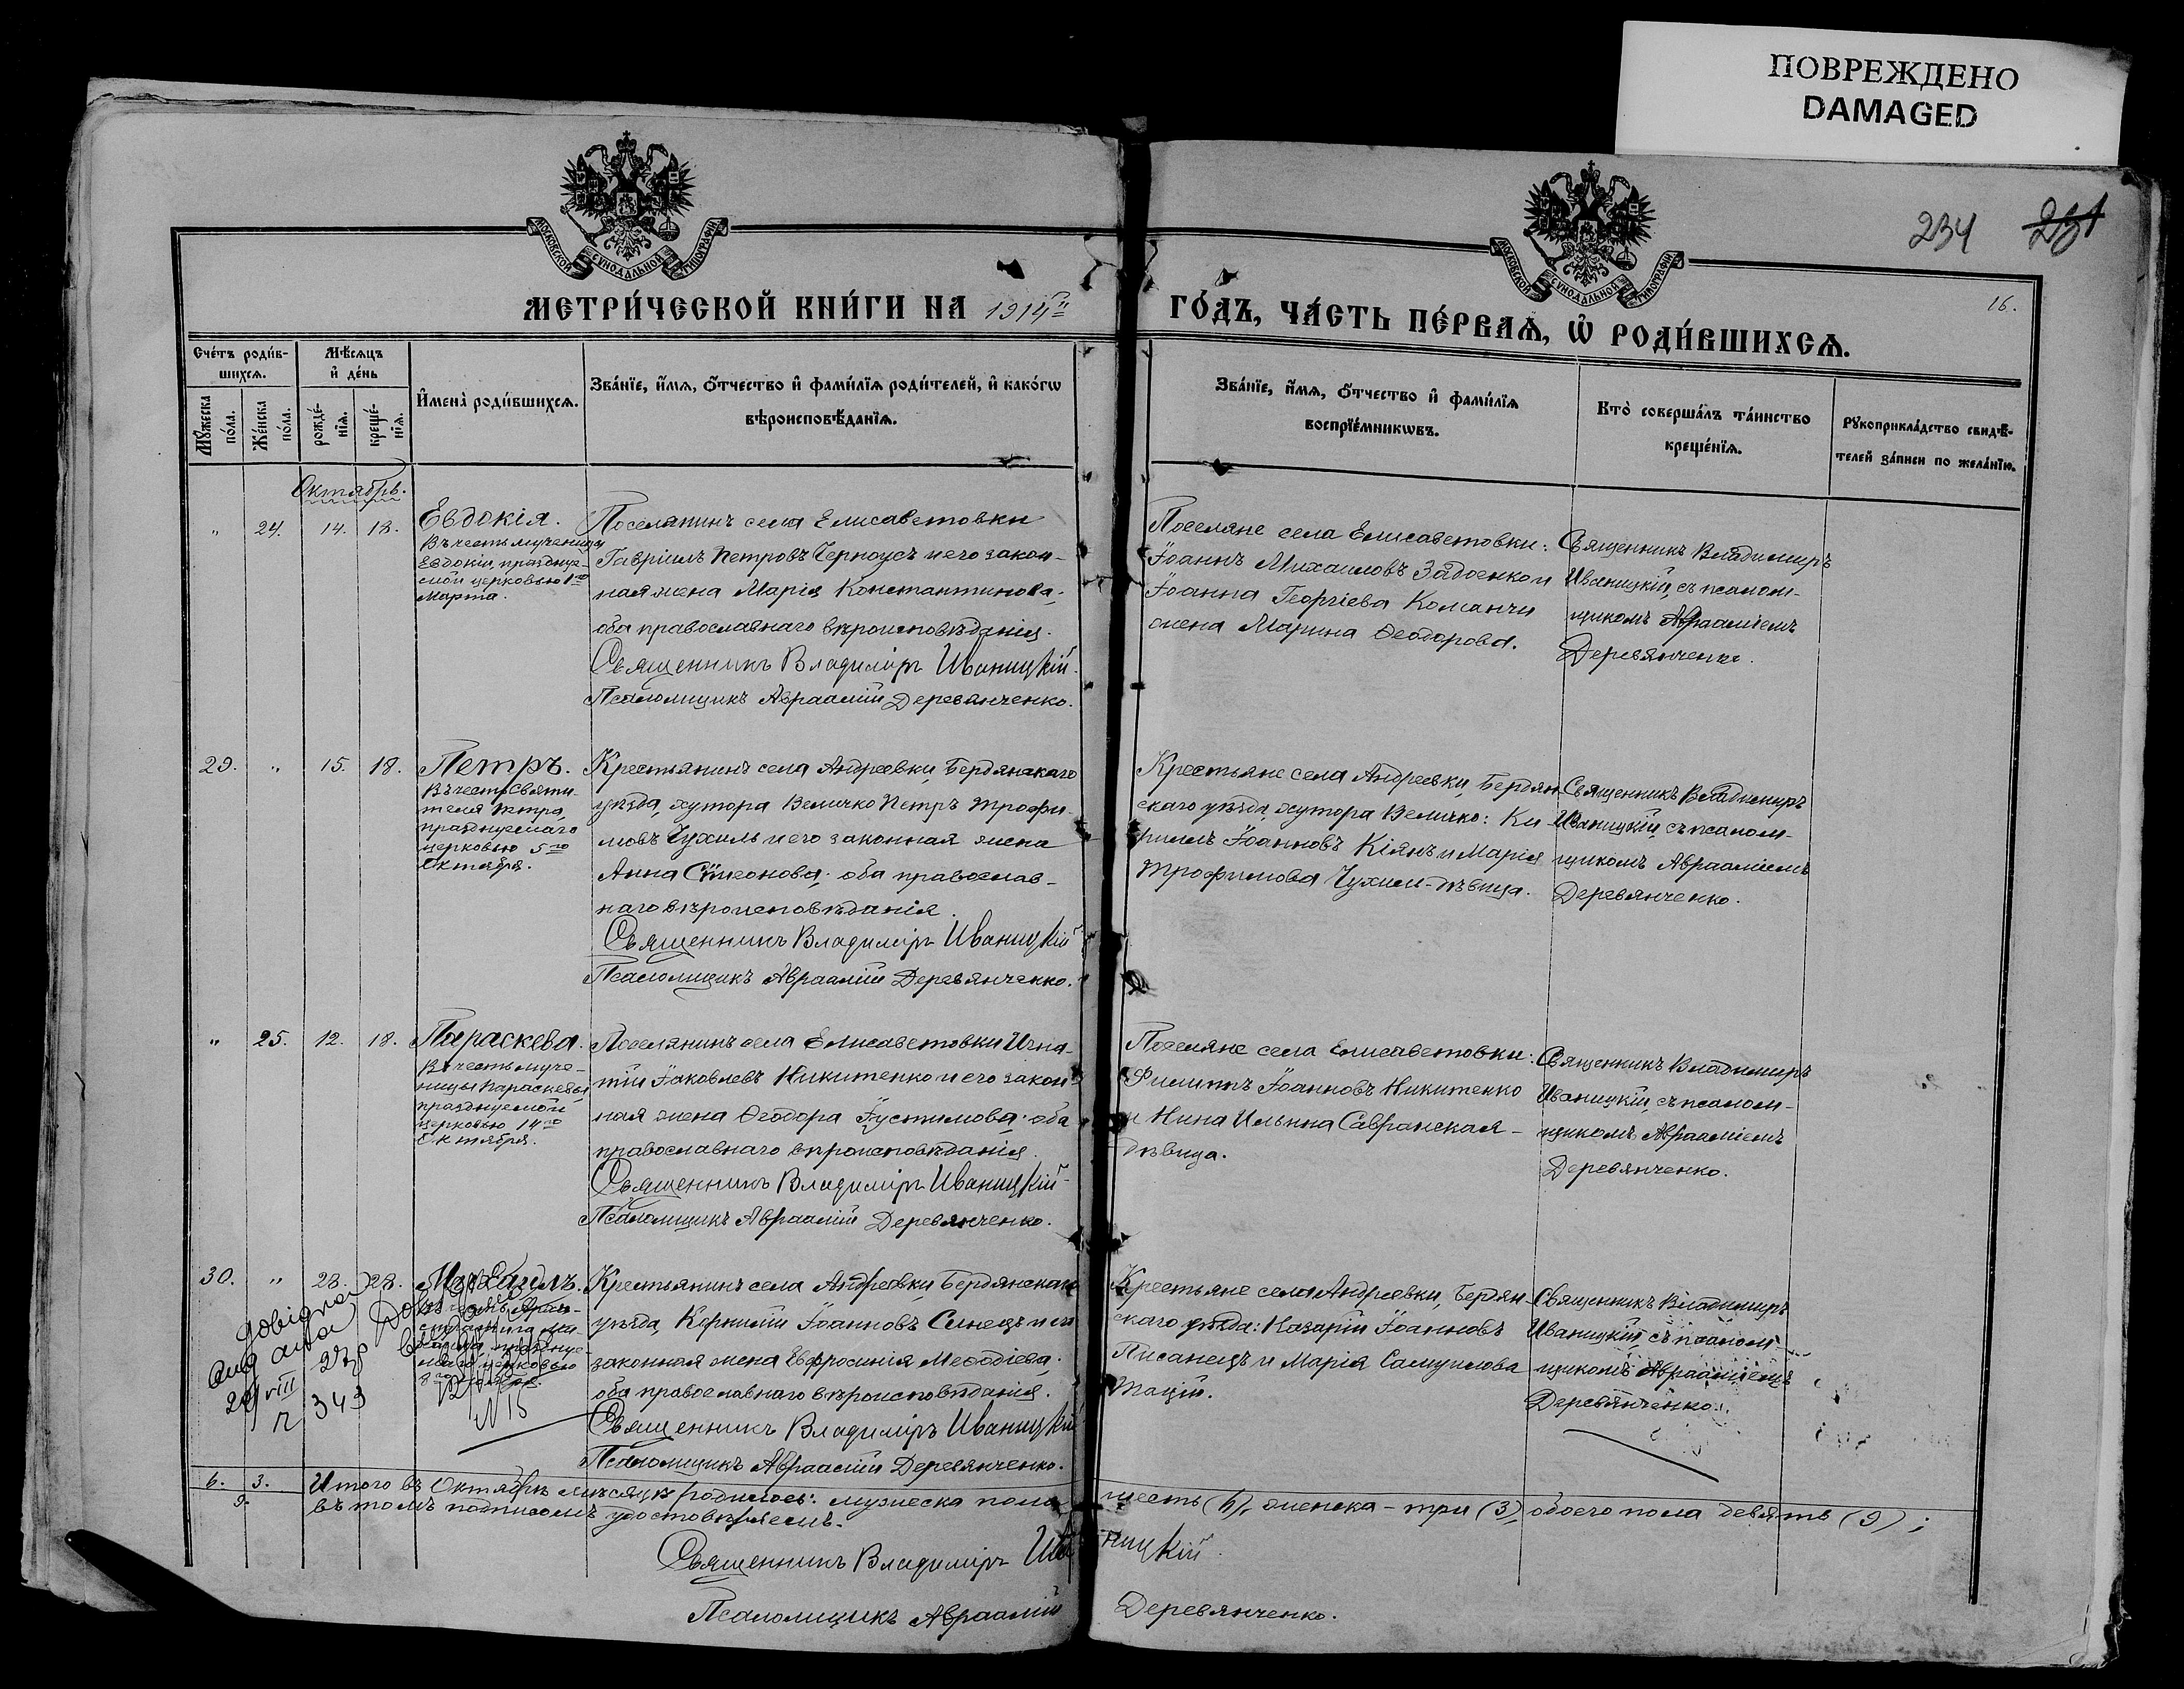 ПОВРЕЖДЕНО
DAMAGED
МОСКОВСКОЙ СУНОДАЛЬНОЙ ТИПОГРАФІИ
МОСКОВСКОЙ СУНОДАЛЬНОЙ ТИПОГРАФІИ
234 231
16.
МЕТРИ́ЧЕСКОЙ КНИ́ГИ НА 1914й
ГО́ДЪ, ЧА́СТЬ ПЕ́РВАѦ, Ѡ҆ РОДИ́ВШИХСѦ.
Сче́тъ роди́в-
шихсѧ.
Мѣ́сѧцъ
и҆ де́нь
Мꙋ́жеска
по́ла.
Же́нска
по́ла.
рожде́-
нїѧ.
креще́-
нїѧ.
И҆мена̀ роди́вшихсѧ.
Зва́нїе, и҆́мѧ, ѻ҆́тчество и҆ фами́лїѧ роди́телей, и҆ како́гѡ
вѣроисповѣ́данїѧ.
Зва́нїе, и҆́мѧ, ѻ҆́тчество и҆ фами́лїѧ
воспрїе́мникѡвъ.
Кто̀ соверша́лъ та́инство
креще́нїѧ.
Рꙋкоприкла́дство свидѣ́-
телей за́писи по жела́нїю.
Октябрь.
„ 24. 14. 18.
Евдокія.
Въ честь мученицы
Евдокіи, празднуе-
мой церковью 1го
Марта.
Поселянинъ села Елисаветовки
Гавріилъ Петровъ Черноусъ и его закон-
ная жена Марія Константинова;
оба православнаго вѣроисповѣданія.
Священникъ Владиміръ Иваницкій.
Псаломщикъ Авраамій Деревянченко.
Поселяне села Елисаветовки:
Іоаннъ Михаиловъ Задоенко и
Іоанна Георгіева Команчи
жена Марина Ѳеодорова.
Священникъ Владимиръ
Иваницкій, съ псалом-
щикомъ Аврааміемъ
Деревянченко.
29. „ 15. 18.
Петръ.
Въ честь Святи-
теля Петра,
празднуемаго
церковью 5го
Октября.
Крестьянинъ села Андреевки, Бердянскаго
уѣзда, хутора Величко Петръ Трофи-
мовъ Чухиль и его законная жена
Анна Сѵмеонова; оба православ-
наго вѣроисповѣданія.
Священникъ Владиміръ Иваницкій
Псаломщикъ Авраамій Деревянченко.
Крестьяне села Андреевки, Бердян-
скаго уѣзда, хутора Величко: Ки-
риллъ Іоанновъ Кіянъ и Марія
Трофимова Чухиль-дѣвица.
Священникъ Владимиръ
Иваницкій, съ псалом-
щикомъ Аврааміемъ
Деревянченко.
„ 25. 12. 18.
Параскева.
Въ честь муче-
ницы Параскевы,
празднуемой
церковью 14го
Октября.
Поселянинъ села Елисаветовки Игна-
тій Іаковлевъ Никитенко и его закон-
ная жена Ѳеодора Іустинова; оба
православнаго вѣроисповѣданія.
Священникъ Владиміръ Иваницкій
Псаломщикъ Авраамій Деревянченко.
Поселяне села Елисаветовки:
Филиппъ Іоанновъ Никитенко
и Нина Ильина Савранская-
дѣвица.
Священникъ Владимиръ
Иваницкій, съ псалом-
щикомъ Аврааміемъ
Деревянченко.
30. „ 28. 28.
Михаилъ.
церковью
29 VIII
343
N 15
Крестьянинъ села Андреевки Бердянскаго
уѣзда, Корнилій Іоанновъ Синецъ и его
законная жена Евфросинія Меѳодіева;
оба православнаго вѣроисповѣданія.
Священникъ Владиміръ Иваницкій
Псаломщикъ Авраамій Деревянченко.
Крестьяне села Андреевки, Бердян-
скаго уѣзда: Назарій Іоанновъ
Писанецъ и Марія Самуилова
Тацій.
Священникъ Владимиръ
Иваницкій, съ псалом-
щикомъ Аврааміемъ
Деревянченко.
6. 3. Итого въ Октябрѣ мѣсяцѣ родилось: мужеска пола шесть (6), женска - три (3), обоего пола девять (9);
9. въ томъ подписомъ удостовѣряемъ.
Священникъ Владиміръ Иваницкій.
Псаломщикъ Авраамій Деревянченко.